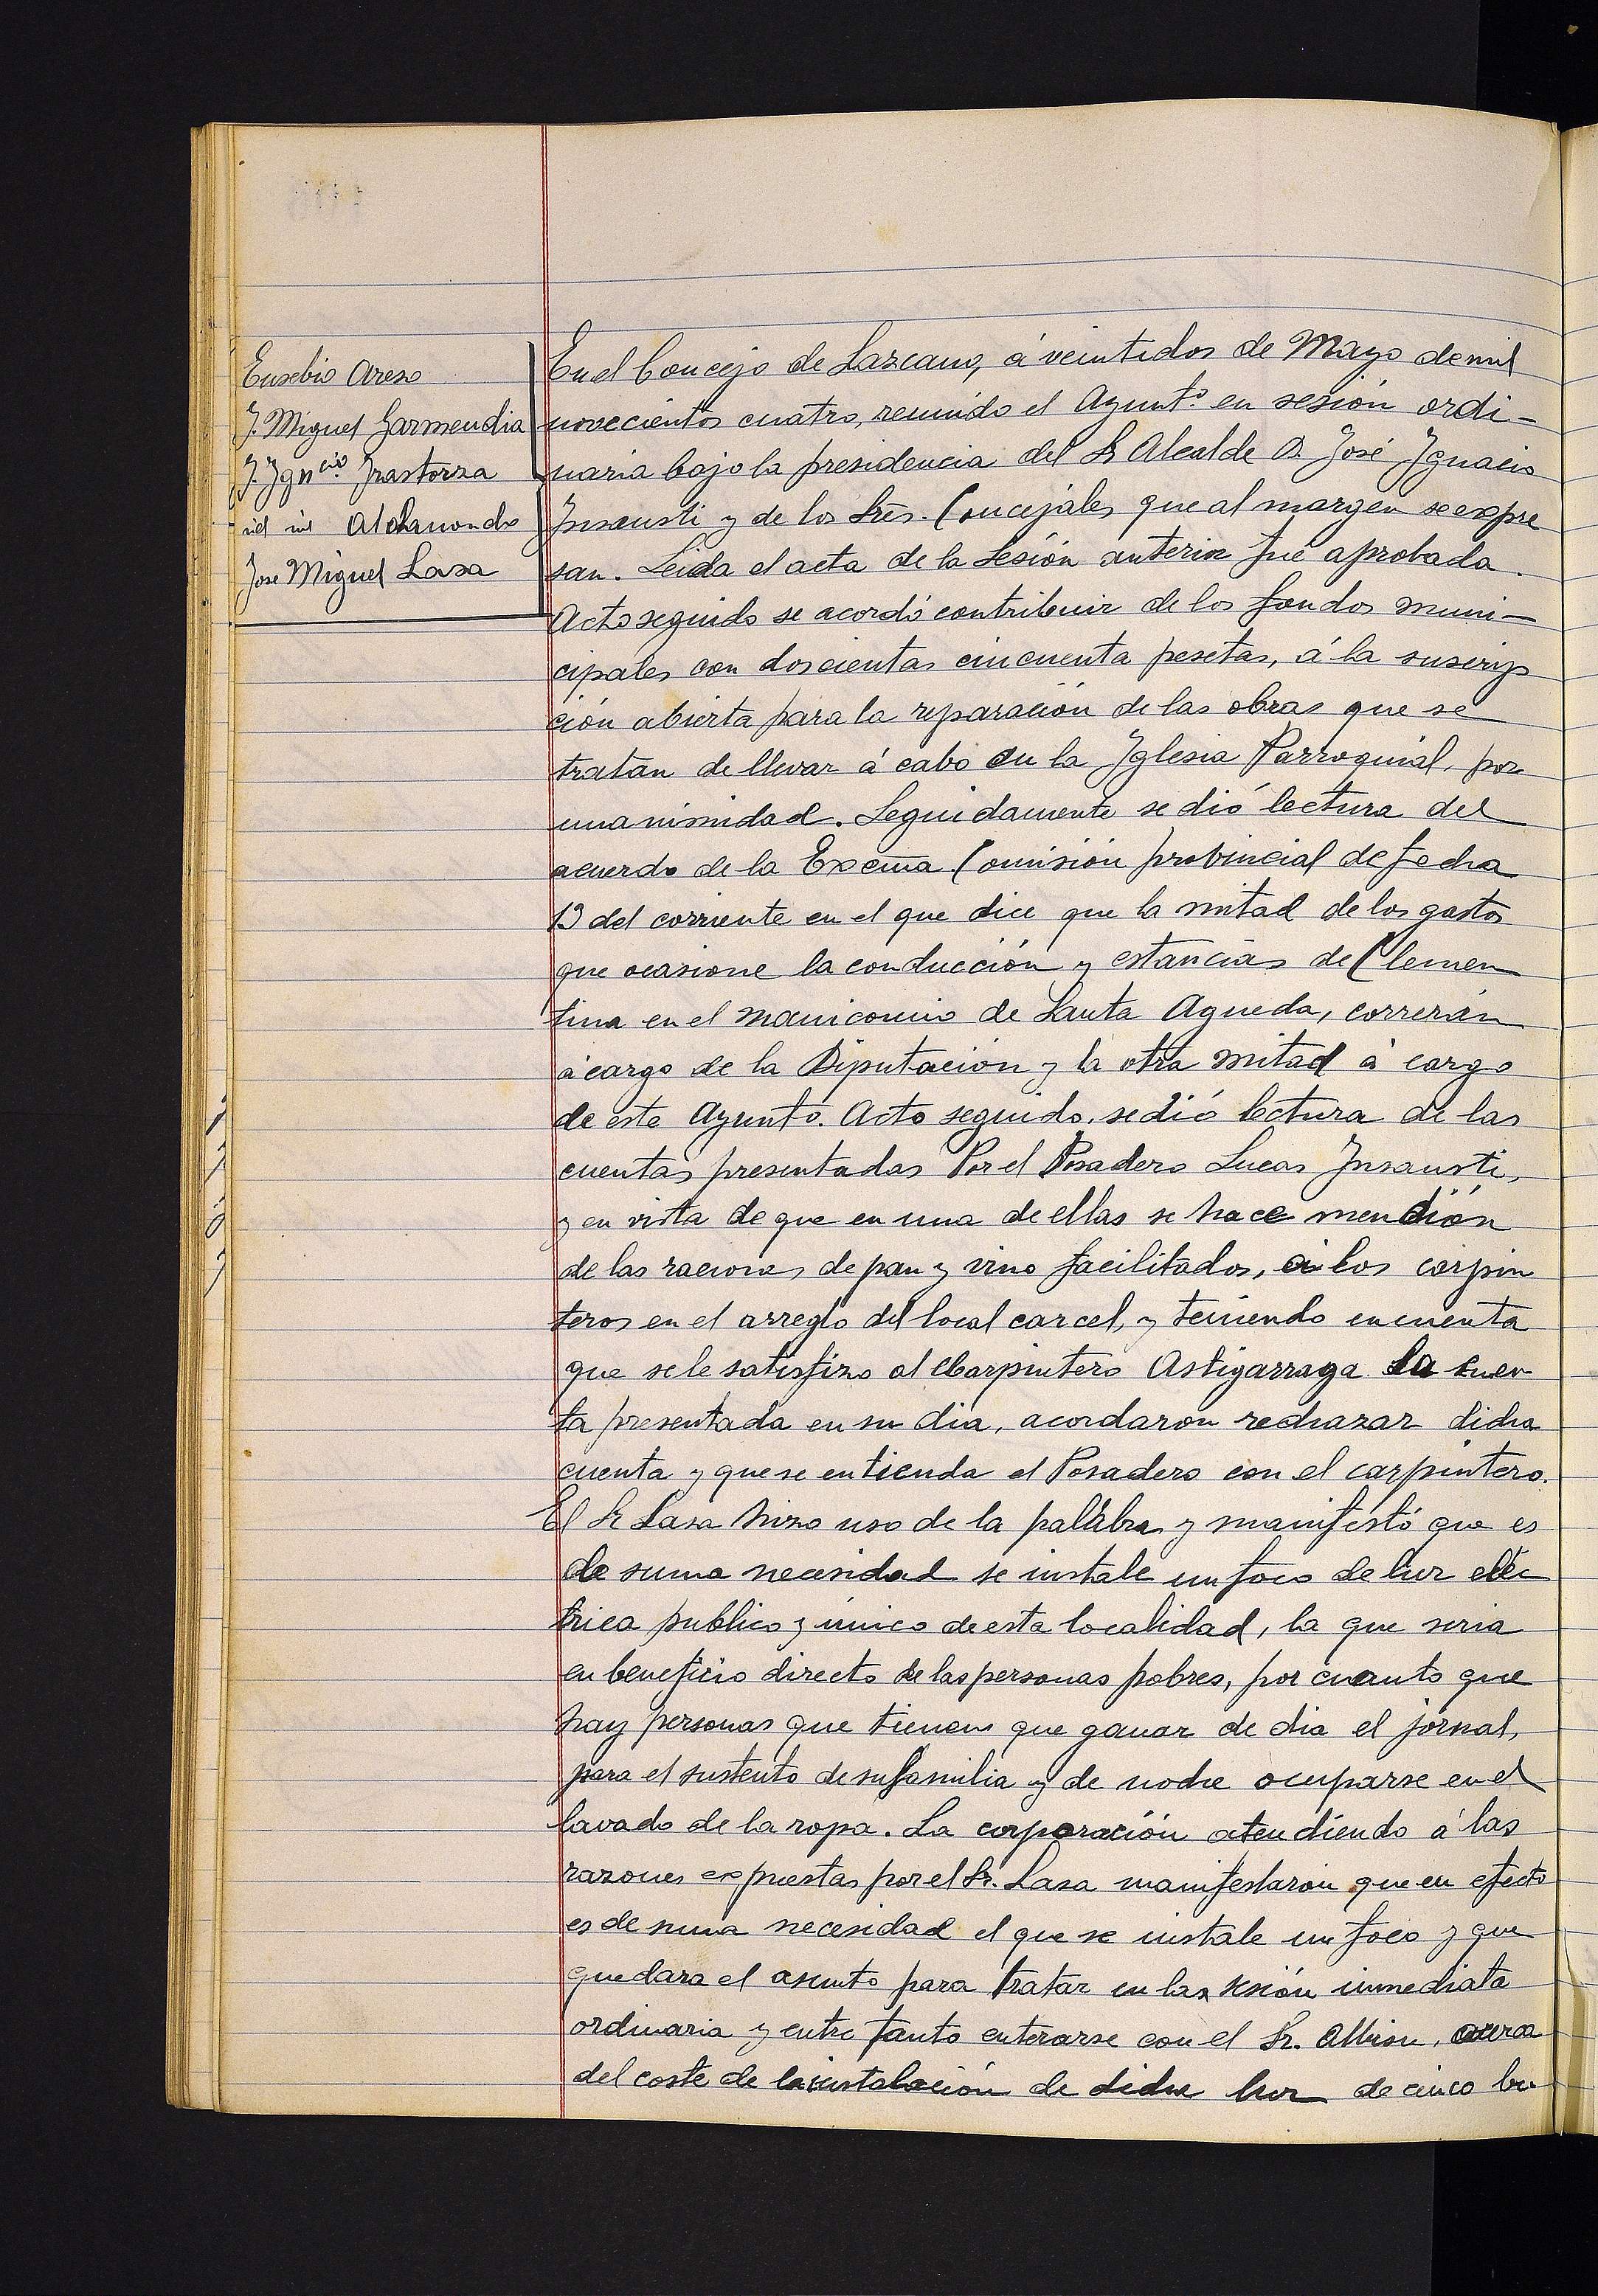 Eusebio Areso
J. Miguel Garmendia
J. Ign.cio Irastorza
id id Aldanondo
Jose Miguel Lasa
En el Concejo de Lazcano, á veintidos de Mayo de mil
novecientos cuatro, reunido el Ayunt.o en sesión ordi-
naria bajo la presidencia del Sr Alcalde D. José Ignacio
Insausti y de los Sres. Concejales que al margen se expre
san. Leida el acta de la sesión anterior fué aprobada.
Acto seguido se acordó contribuir de los fondos muni-
cipales con doscientas cincuenta pesetas, á la suscrip
ción abierta para la reparación de las obras que se
tratan de llevar á cabo en la Iglesia Parroquial, por
unanimidad. Seguidamente se dió lectura del
acuerdo de la Excma Comisión provincial de fecha
13 del corriente en el que dice que la mitad de los gastos
que ocasione la conducción y estancias de Clemen
tina en el manicomio de Santa Agueda, correrán
á cargo de la Diputación y la otra mitad á cargo
de este Ayunto. Acto seguido, se dió lectura de las
cuentas presentadas Por el Posadero Lucas Insausti,
y en vista de que en una de ellas se hace mendión
de las raciones de pan y vino facilitados, á los carpin
teros en el arreglo del local carcel, y teniendo en cuenta
que se le satisfizo al Carpintero Astigarraga la cuen
ta presentada en su dia, acordaron rechazar dicha
cuenta y que se entienda el Posadero con el carpintero.
El Sr Lasa hizo uso de la palabra y manifestó que es
de suma necesidad se instale un foco de luz eléc
trica publico y único de esta localidad, la que seria
en beneficio directo de las personas pobres, por cuanto que
hay personas que tienen que ganar de dia el jornal,
para el sustento de su familia y de noche ocuparse en el
lavado de la ropa. La corporación atendiendo á las
razones expuestas por el Sr. Lasa manifestaron que en efecto
es de suma necesidad el que se instale un foco y que
quedara el asunto para tratar en la sesión inmediata
ordinaria y entre tanto enterarse con el Sr. Albisu, acerca
del coste de la instalación de dicha luz de cinco bu